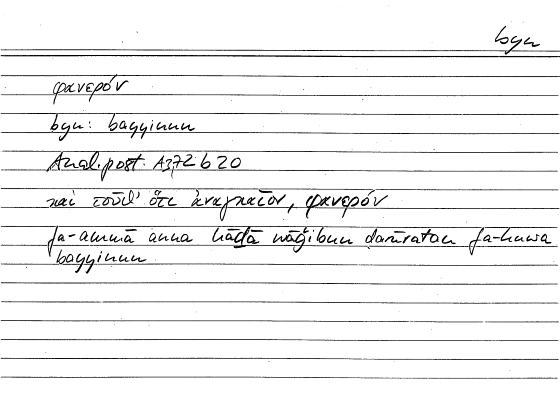 byn
φανερόν
byn: bayyinun
Anal. post. A3, 72 b 20
καὶ τοῦθ' ὅτι ἀναγκαῖον, φανερόν
fa-ammā anna hāḏā wāǧibun ḍarūratan fa-huwa
bayyinun